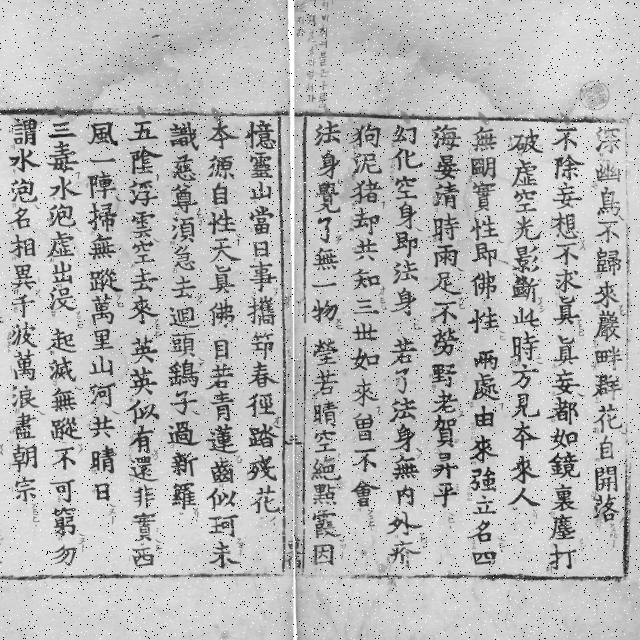 深幽鳥不歸來巖畔群花自開落
不除妄想不求眞眞妄都如鏡裏塵打
破虛空光影斷此時方見本來人
無明實性即佛性 兩處由來強立名四
海晏清時雨足不勞野老賀昇平
幻化空身即法身 若了法身無內外疥
狗泥猪却共知三世如來曾不會
法身覺了無一物 瑩若晴空絕點霞因
憶靈山當日事携節春徑踏殘花
本源自性天眞佛 目若靑蓮齒似珂未
識慈尊湏急去迴頭鷂子過新羅
五陰浮雲空去來 英英似有還非實西
風一陣掃無蹤萬里山河共晴日
三毒水泡虛出沒 起滅無蹤不可窮勿
謂水泡名相異千波萬浪盡朝宗